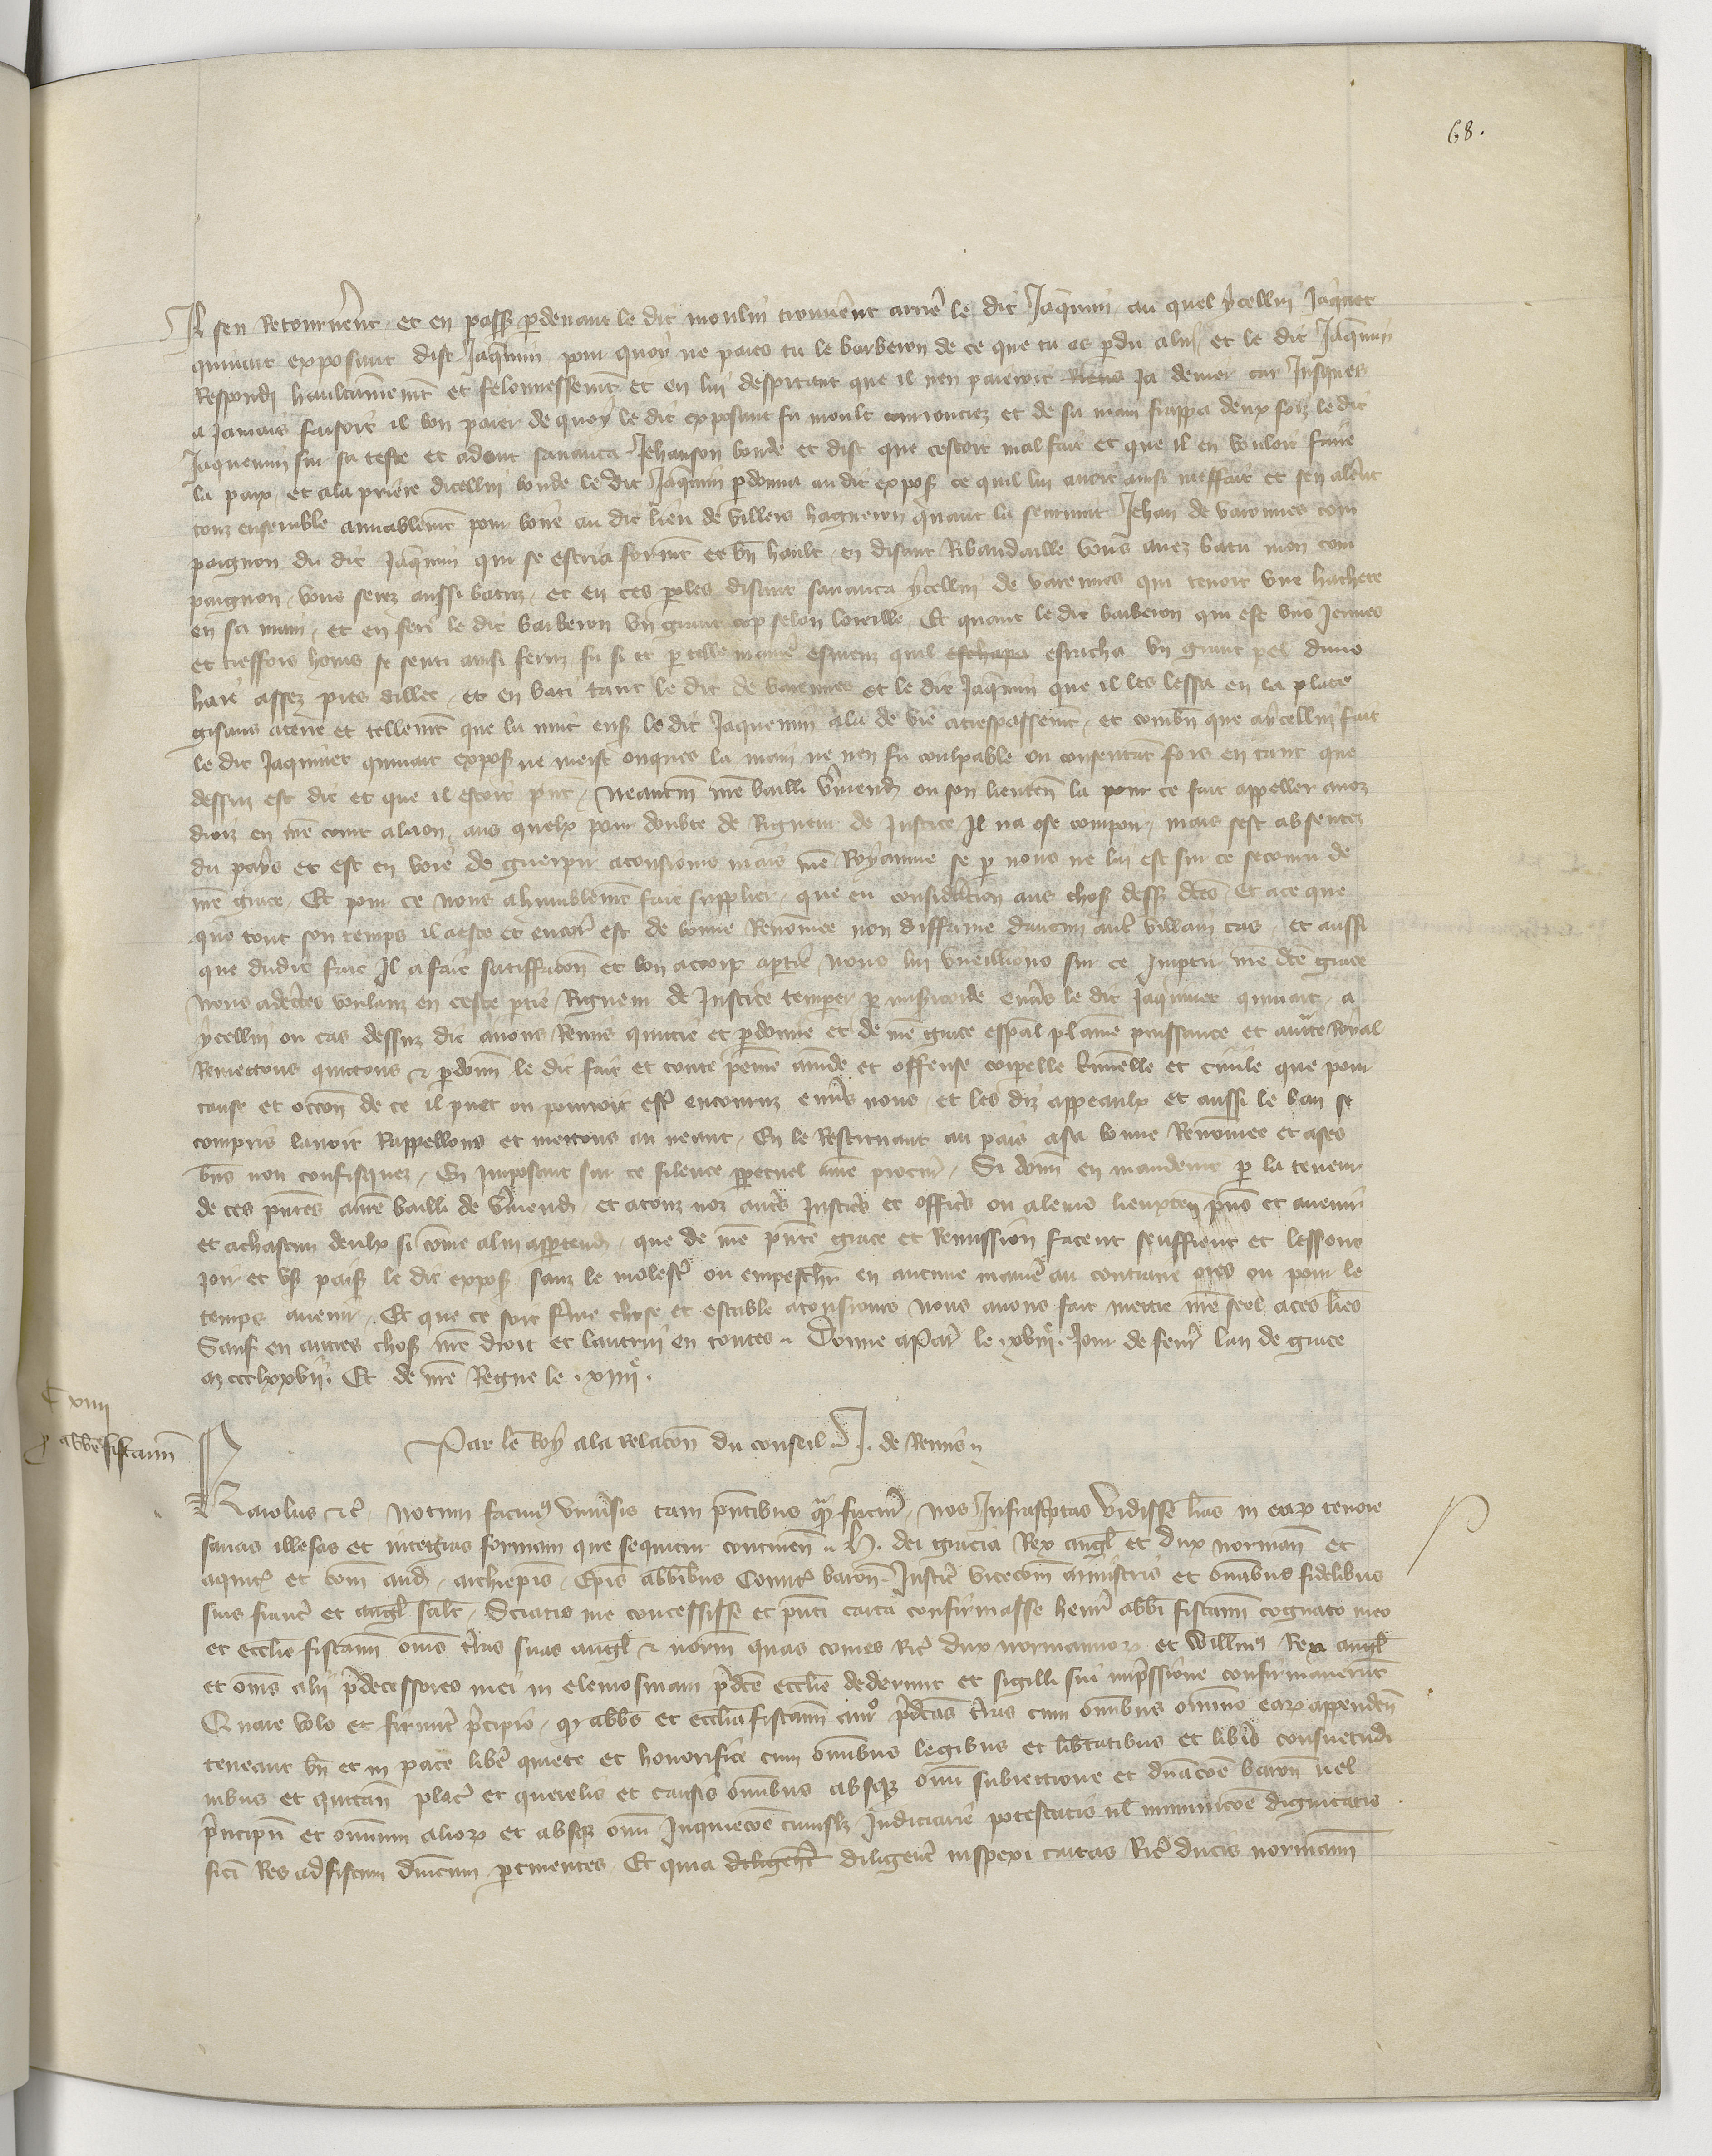 68.
Il sen Retournerent et en passant pardevant le dit moulin trouverent arriere le dit Jaquemin au quel ycellui Jaquinet
quinart exposant dist Jaquemin pour quoy ne paies tu le barberon de ce que tu as perdu a lui et le dit Jaquemin
Respondi haultainement et felonnessement et en lui despitant que il nen paieroit Riens Ja denier car Jusques
a Jamais faisoit il bon paier de quoy le dit exposant fu moult courrouciez et de sa main frappa deux fois le dit
Jaquemin sur sa teste et adont savanca Jehanson bonde et dist que cestoit mal fait et que il en vouloit faire
la paix et a la priere dicellui bonde le dit Jaquemin pardonna au dit exposant ce quil lui avoit ainsi meffait et sen alerent
touz ensemble amiablement pour boire au dit lieu de villers hagneron quant la seurvint Jehan de varennes com
paignon du dit Jaquemin qui se escria forment et bien hault en disant Ribaudaille vous avez batu mon com
paignon vous serez aussi batuz et en ces paroles disant savanca ycellui de varennes qui tenoit une hachete
en sa main et en feri le dit barberon un grant cop selon loreille Et quant le dit barberon qui est uns Jeunes
et tresfors homs se senti ainsi feruz fu si et par telle maniere esmeuz quil eschapa esracha un grant pel dune
haie assez pres dillec et en bati tant le dit de varennes et le dit Jaquemin que il les lessa en la place
gisans a terre et tellement que la nuit ensuivant le dit Jaquemin ala de vie a trespassement et combien que a ycellui fait
le dit Jaquinet quinart exposant ne meist onques la main ne nen fu coulpable ou consentant fors en tant que
dessus est dit et que il estoit present neantmoins nostre bailli de vermendois ou son lieutenant la pour ce fait appeller a noz
droiz en nostre court a laon aus quelx pour doubte de Rigueur de Justice Il na ose comparoir mais sest absentez
du pays et est en voie de guerpir a tousjours mais nostre Royaume se par nous ne lui est sur ce secouru de
nostre grace Et pour ce nous a humblement fait supplier que eu consideration aus choses dessus dites Et a ce que
que tout son temps il a este et encores est de bonne Renommee non diffame daucun autre villain cas et aussi
que dudit fait Il a fait satisfaction et bon accort a partie nous lui vueillions sur ce Impartir nostre dite grace
Nous adecertes voulans en ceste partie Rigueur de Justice temperer par misericorde envers le dit Jaquinet quinart a
ycellui ou cas dessus dit avons Remis quittie et pardonne et de nostre grace especial plainne puissance et auctorite Royal
Remettons quittons et pardonnons le dit fait et toute peine amende et offense corporelle criminelle et civile que pour
cause et occasion de ce il puet ou pourroit estre encouruz envers nous et les diz appeaulx et aussi le ban se
compris lavoit Rappellons et mettons au neant En le Restituant au pais a sa bonne Renommee et a ses
biens non confisquez En Imposant sur ce silence perpetuel a nostre procureur Si donnons en mandement par la teneur
de ces presentes a nostre bailli de vermendois et a touz noz autres Justiciers et officiers ou a leurs lieuxtenans presens et avenir
et a chascun deulx si comme a lui appartendra que de nostre presente grace et Remission facent seuffrent et lessent
Joir et user paisiblement le dit exposant sanz le molester ou empescher en aucune maniere au contraire ores ou pour le
temps avenir Et que ce soit ferme chose et estable a tousjours Nous avons fait mettre nostre seel a ces lettres
Sauf en autres choses nostre droit et lautrui en toutes Donne a Paris le xviiie Jour de fevrier lan de grace
m ccclxxvii Et de nostre Regne le xiiiie
Par le Roy a la relacion du conseil J. de Remis
C xiiii
pro abbate fiscannensi
Karolus etc. Notum facimus universis tam presentibus quam futuris Nos Infrascriptas vidisse litteras in earum tenore
sanas illesas et integras formam que sequitur continentes H. dei gracia Rex anglie et dux normannie et
aquitanie et comes andegavie archiepiscopis Episcopis abbatibus Comitibus baronibus Justiciariis vicecomitibus ministris et omnibus fidelibus
suis francie et anglie salutem Sciatis me concessisse et presenti carta confirmasse henrico abbati fiscannensi cognato meo
et ecclesie fiscannensi omnes terras suas anglie et normannie quas comes Ricardus dux normannorum et Willelmus Rex anglie
et omnes alii predecessores mei in elemosinam predicte ecclesie dederunt et sigilli sui impressione confirmaverunt
Quare volo et firmiter precipio quod abbas et ecclesia fiscannensis predictas terras cum omnibus omnino earum appendentiis
teneant bene et in pace libere quiete et honorifice cum omnibus legibus et libertatibus et liberis consuetudi
nibus et quittanciis placitis et querelis et causis omnibus absque omni subjectione et dominacione baronum vel
principum et omnium aliorum et absque omni Inquietacione cujuslibet Judiciarie potestatis vel inminucione dignitatis
sicut Res ad fiscum dominicum pertinentes Et quia diligenter diligenter inspexi cartas Ricardi ducis normannorum